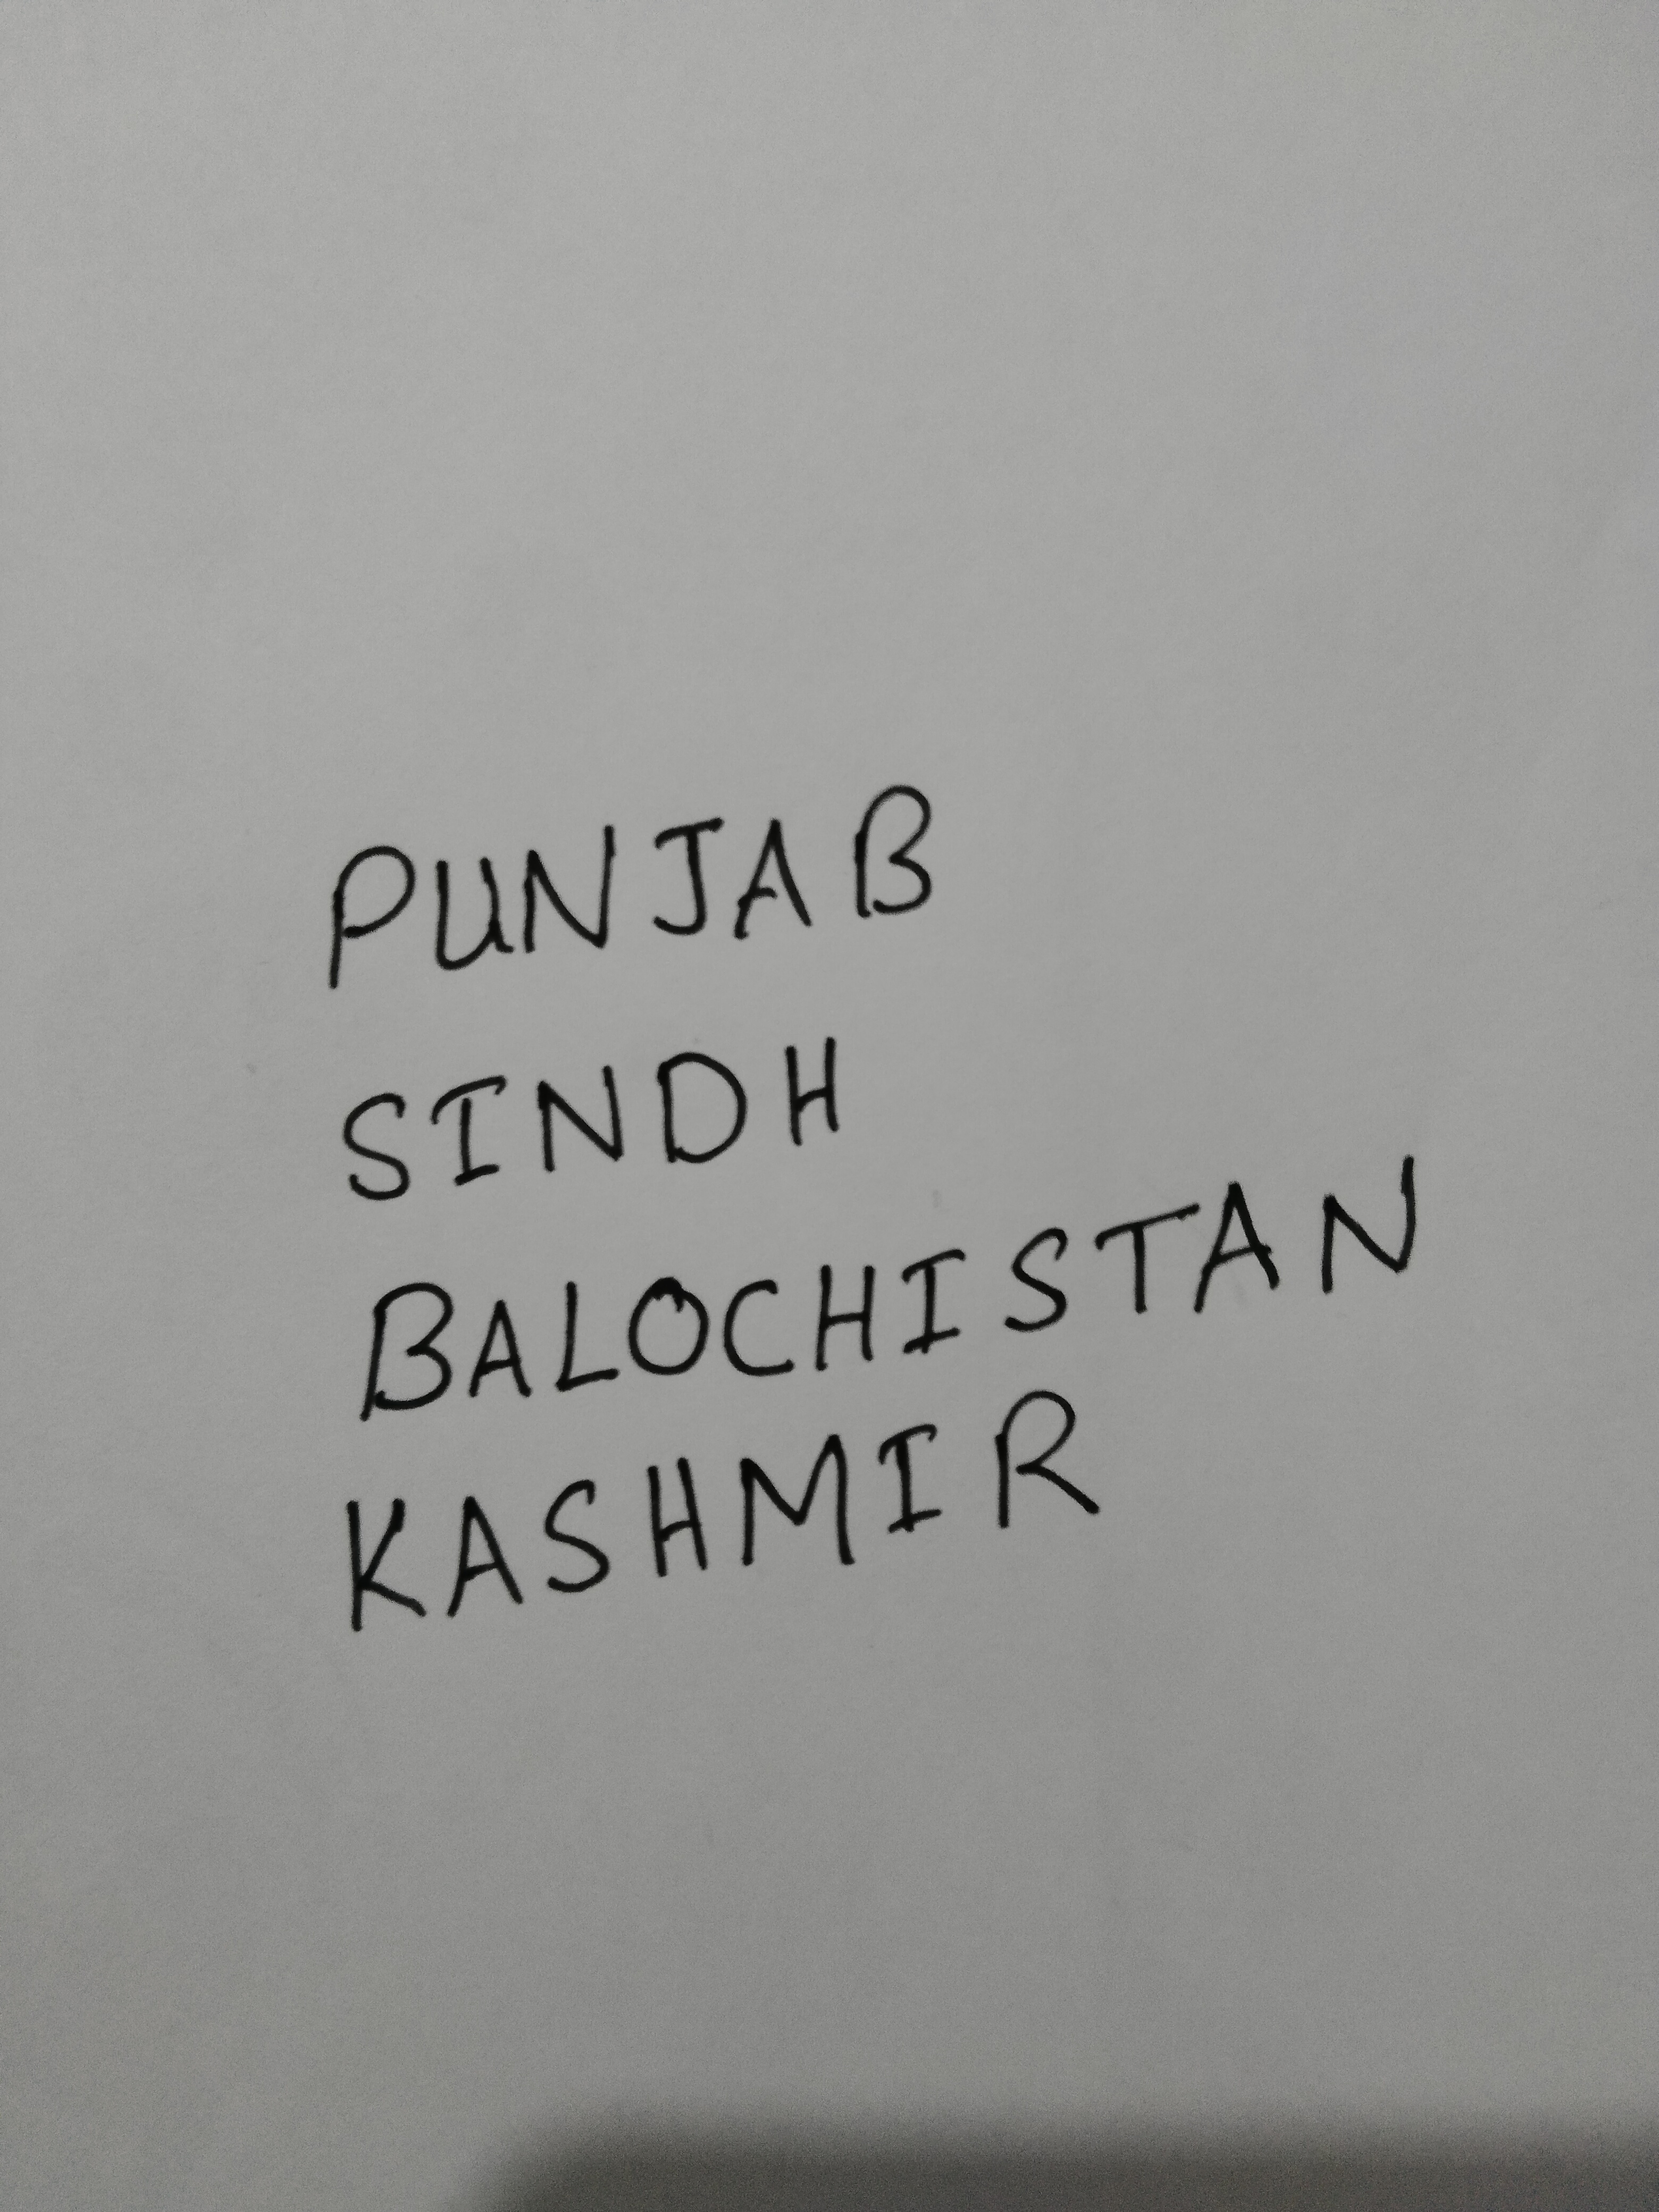 PUNJAB
SINDH
BALOCHISTAN
KASHMIR